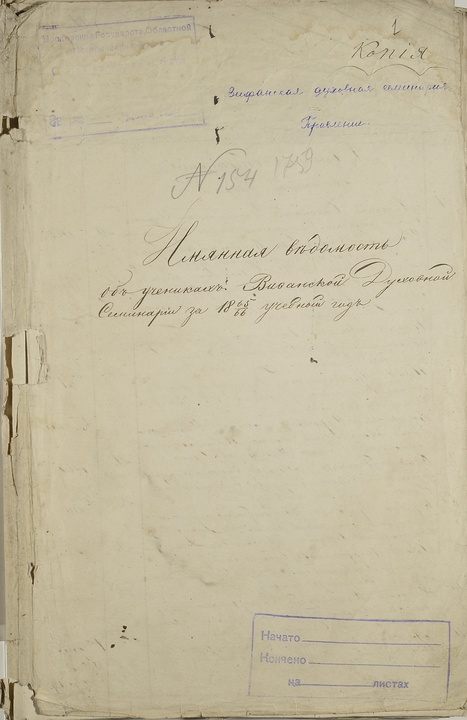 1
Копія
Вифанская духовная семинария.
Правление.
N 154 1759
Имянная вѣдомость
объ ученикахъ: Виѳанской Духовной
Семинаріи за 18 65/66 учебный годъ
Начато
Кончено
на листах